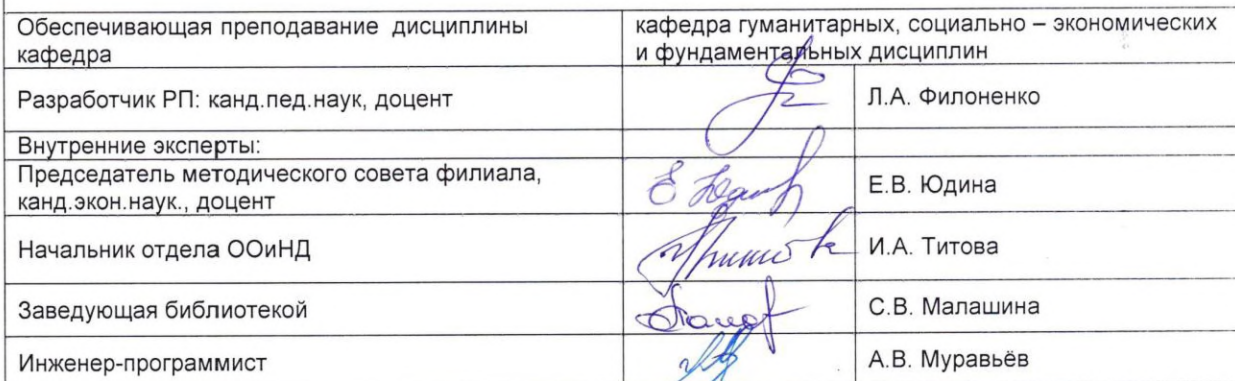 Обеспечивающая преподавание дисциплины
кафедра
кафедра гуманитарных, социально – экономических
и фундаментальных дисциплин
Разработчик РП: канд.пед.наук, доцент
Л.А. Филоненко
Внутренние эксперты:
Председатель методического совета филиала,
канд.экон.наук., доцент
Е.В. Юдина
Начальник отдела ООиНД
И.А. Титова
Заведующая библиотекой
С.В. Малашина
Инженер-программист
А.В. Муравьёв